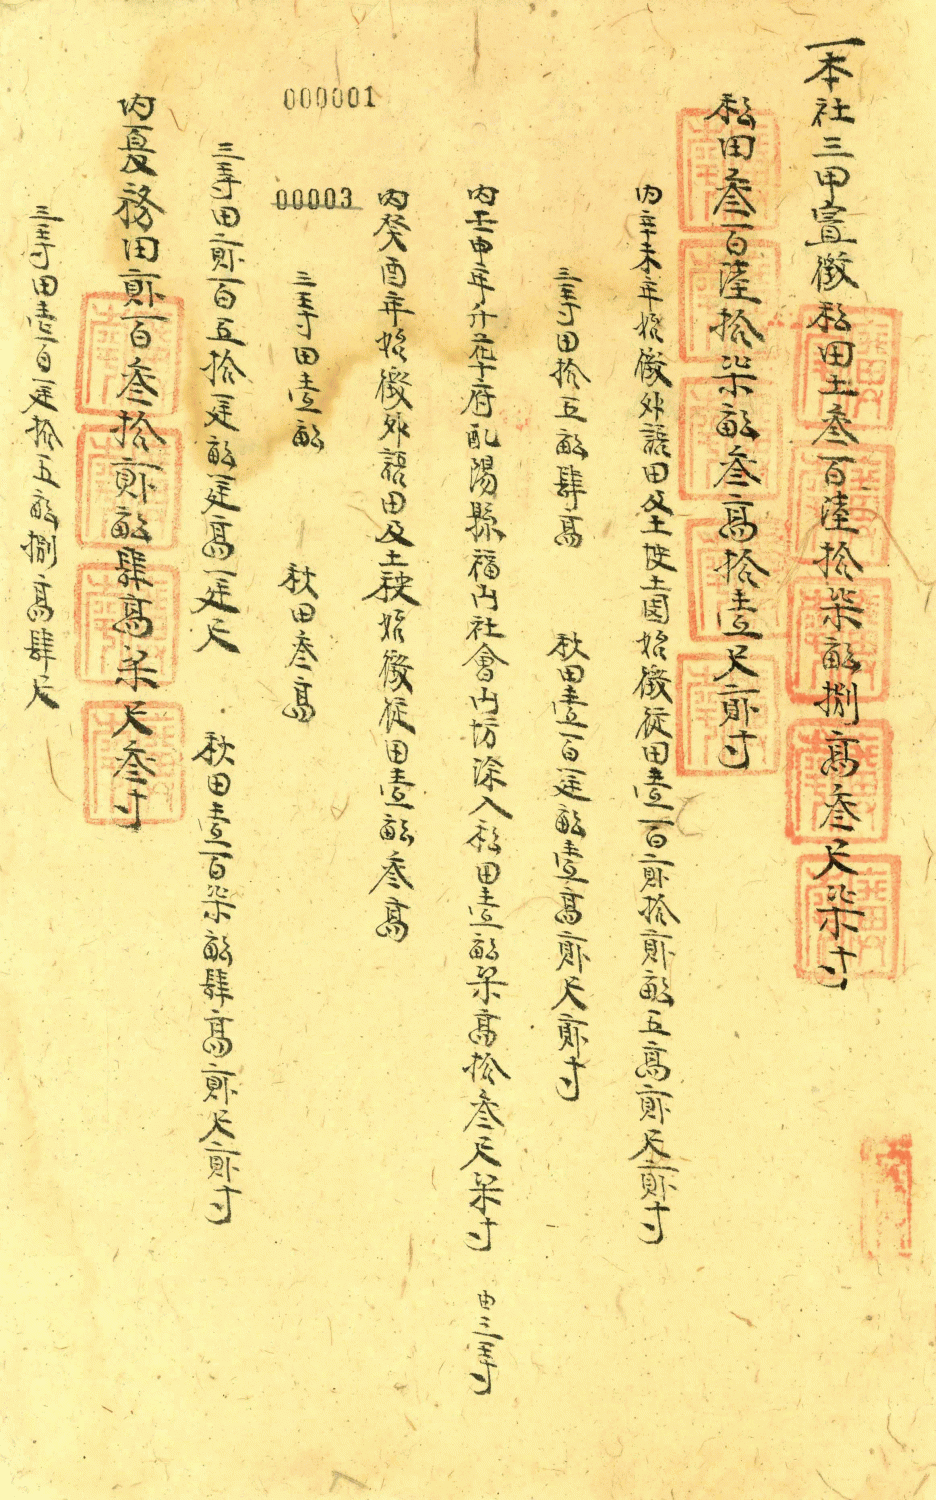 一本社三甲實徵私田土叁百陸拾柒畝捌高叁尺柒寸
私田叁百陸拾柒畝叁高拾壹尺貳寸
內辛未年始徵外 田及土 土園始徵從田壹百貳拾貳畝五高貳尺貳寸
三等田拾五畝肆高 秋田壹百 畝壹高貳尺貳寸
內壬申年 府配陽縣福山社會山坊涂入私田壹畝柒高拾叁尺柒寸 由三等
內癸酉年始徵外 田及土秧始徵從田壹畝叁高
三等田壹畝 秋田叁高
000001
00003
三等田貳百五拾 畝 高 尺 秋田壹百柒畝肆高貳尺貳寸
內夏務田貳百叁拾貳畝肆高柒尺叁寸
三等田壹百 拾五畝捌高肆尺